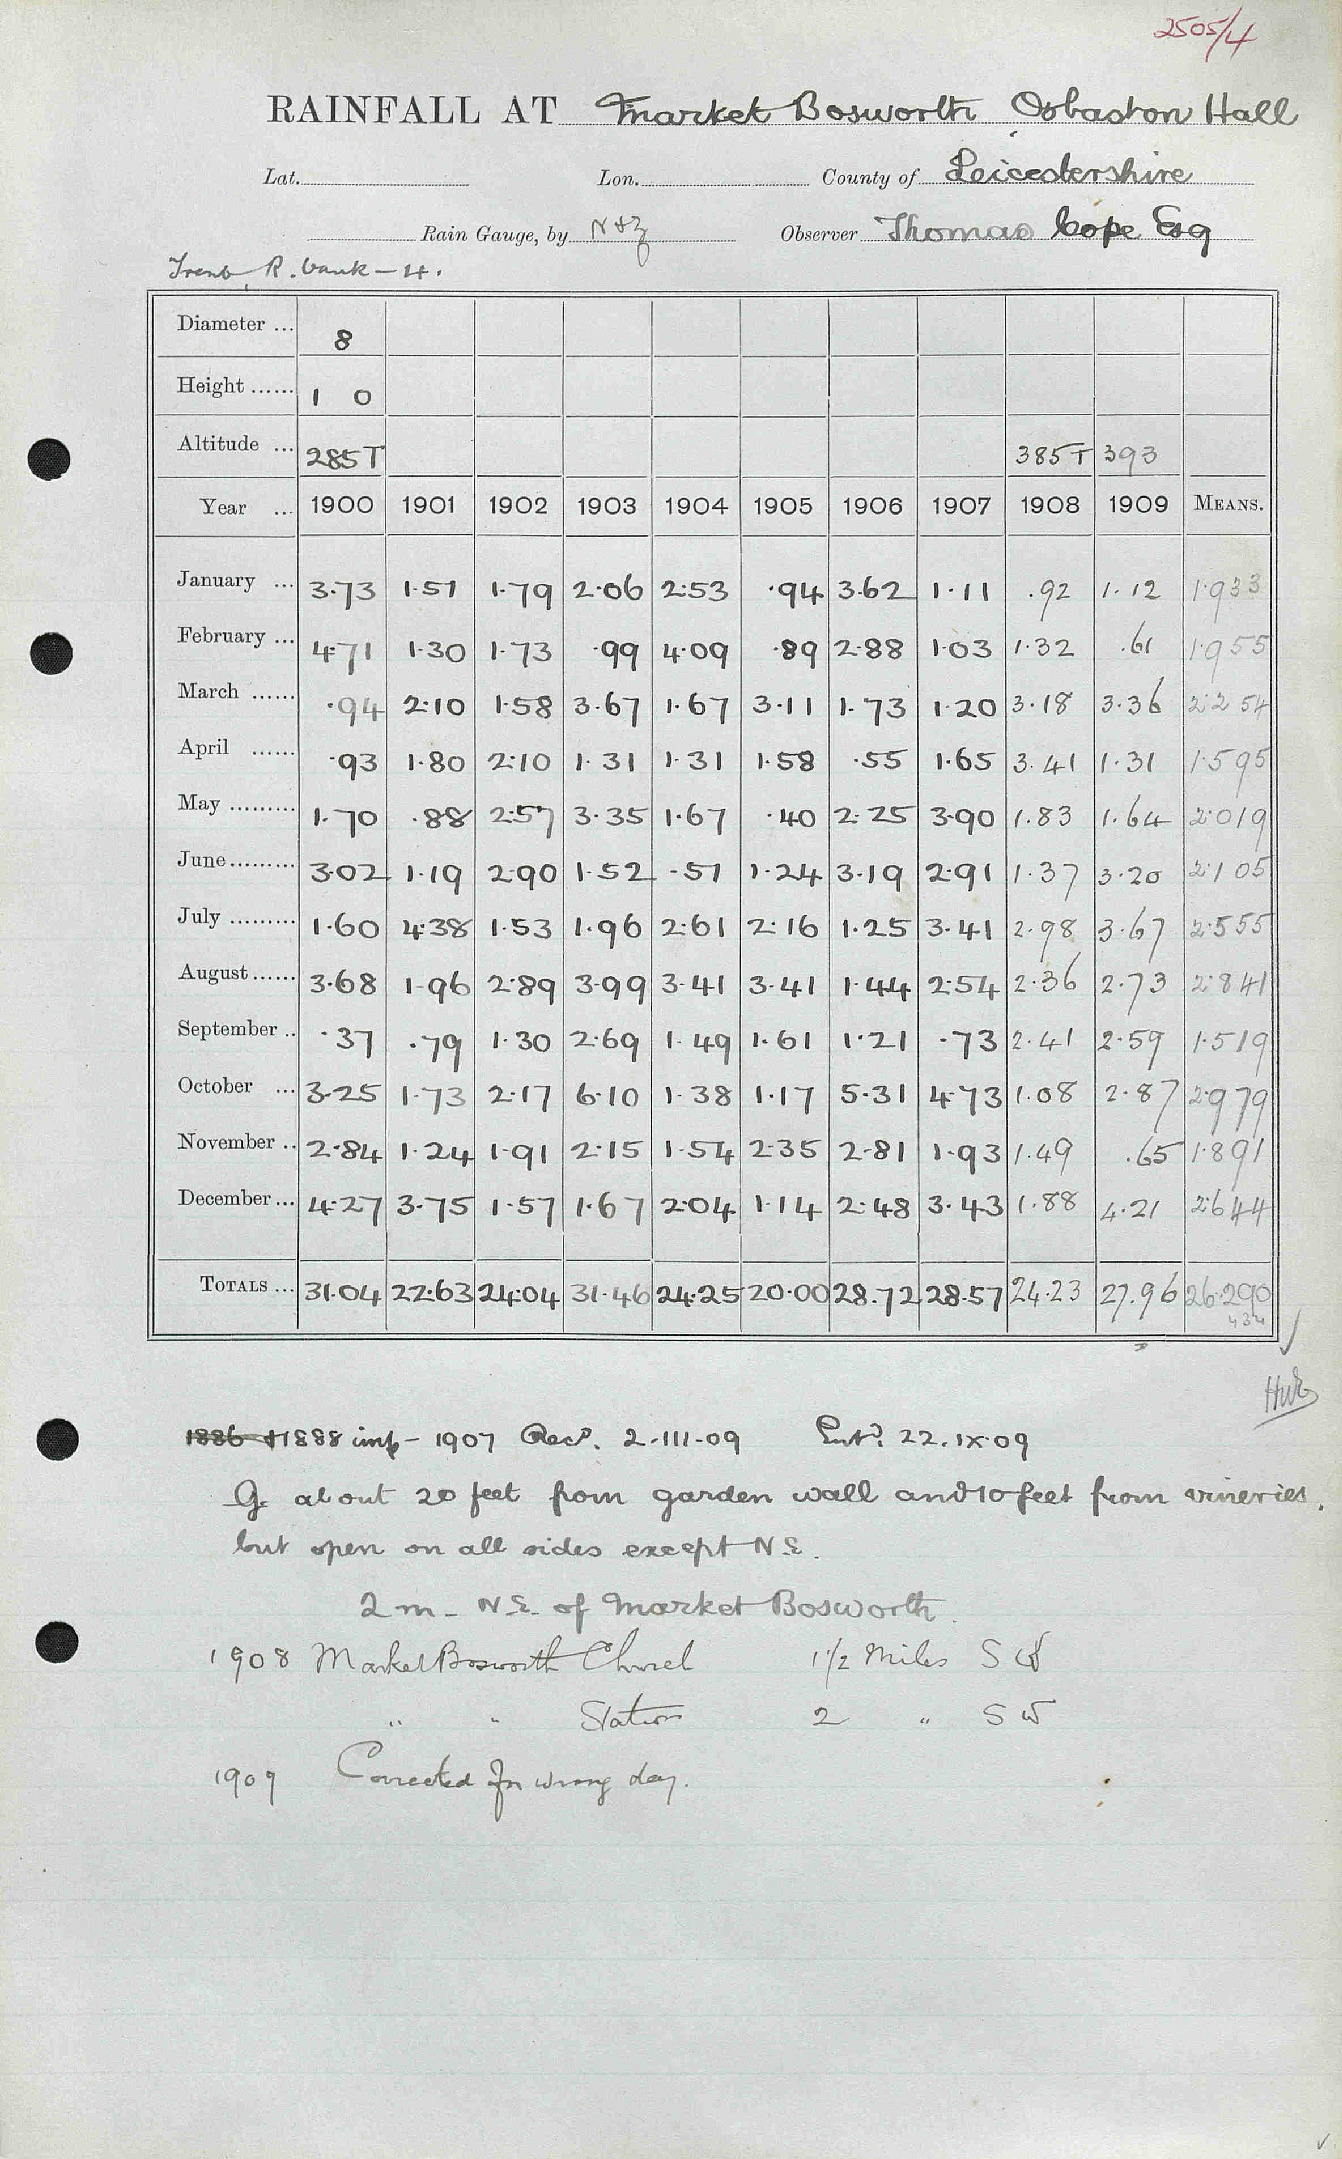 2505/4
RAINFALL AT Market Bosworth Osbaston Hall
Lat. Lon. County of Leicestershire
Rain Gauge, by N & Z Observer Thomas Cope Esq
Trent, R. bank – 4.
Diameter ... 8
Height ...... 1 0
Altitude ... 285T 385T 393
Year ... 1900 1901 1902 1903 1904 1905 1906 1907 1908 1909 MEANS.
January ... 3.73 1.51 1.79 2.06 2.53 .94 3.62 1.11 .92 1.12 1.933
February ... 4.71 1.30 1.73 .99 4.09 .89 2.88 1.03 1.32 .61 1.955
March ...... .94 2.10 1.58 3.67 1.67 3.11 1.73 1.20 3.18 3.36 2.254
April ...... .93 1.80 2.10 1.31 1.31 1.58 .55 1.65 3.41 1.31 1.595
May ......... 1.70 .88 2.57 3.35 1.67 .40 2.25 3.90 1.83 1.64 2.019
June ......... 3.02 1.19 2.90 1.52 .51 1.24 3.19 2.91 1.37 3.20 2.105
July ......... 1.60 4.38 1.53 1.96 2.61 2.16 1.25 3.41 2.98 3.67 2.555
August ...... 3.68 1.96 2.89 3.99 3.41 3.41 1.44 2.54 2.36 2.73 2.841
September .. .37 .79 1.30 2.69 1.49 1.61 1.21 .73 2.41 2.59 1.519
October ... 3.25 1.73 2.17 6.10 1.38 1.17 5.31 4.73 1.08 2.87 2.979
November .. 2.84 1.24 1.91 2.15 1.54 2.35 2.81 1.93 1.49 .65 1.891
December ... 4.27 3.75 1.57 1.67 2.04 1.14 2.48 3.43 1.88 4.21 2.644
TOTALS ... 31.04 22.63 24.04 31.46 24.25 20.00 28.72 28.57 24.23 27.96 26.290
434
1886 + 1888 imp – 1907 Recd. 2.III.09 Entd. 22.IX.09
G. about 20 feet from garden wall and 10 feet from vineries,
but open on all sides except N E.
2 m – N E. of Market Bosworth.
1908 Market Bosworth Church 1 1/2 Miles S W
" " Station 2 " S W
1909 Corrected for wrong day.